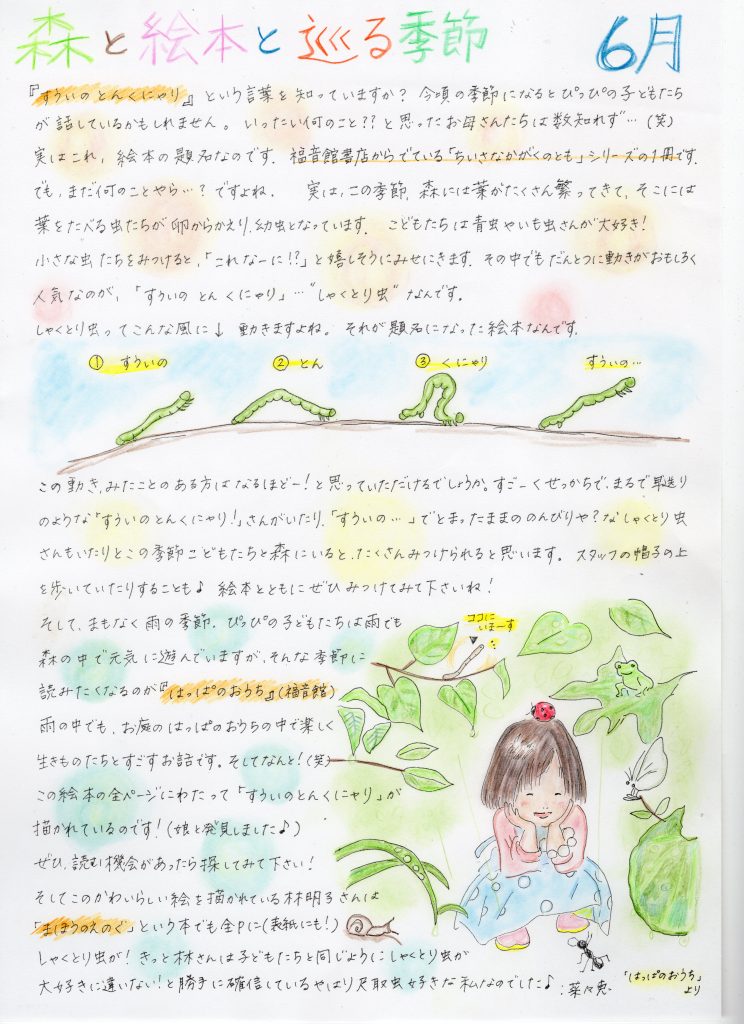 森と絵本と巡る季節 6月
『すういのとんくにゃり』という言葉を知っていますか? 今頃の季節になるとぴっぴの子どもたち
が話しているかもしれません。いったい何のこと??と思ったお母さんたちは数知れず…(笑)
実はこれ、絵本の題名なのです。福音館書店からでている「ちいさなかがくのとも」シリーズの1冊です。
でも、まだ何のことやら…? ですよね。 実は、この季節、森には葉がたくさん繁ってきて、そこには
葉をたべる虫たちが卵からかえり、幼虫となっています。 こどもたちは青虫やいも虫さんが大好き!
小さな虫たちをみつけると、「これなーに!?」と嬉しそうにみせにきます。その中でもだんとつに動きがおもしろく
人気なのが、「すういの とん くにゃり」…"しゃくとり虫"なんです。
しゃくとり虫ってこんな風に↓ 動きますよね。それが題名になった絵本なんです。
① すういの ② とん ③ くにゃり すういの…
この動き、みたことのある方はなるほどー!と思っていただけるでしょうか。すごーくせっかちで、まるで早送り
のような「すういのとんくにゃり!」さんがいたり、「すういの…」でとまったままののんびりや?なしゃくとり虫
さんもいたりとこの季節こどもたちと森にいると、たくさんみつけられると思います。スタッフの帽子の上
を歩いていたりすることも♪ 絵本とともにぜひみつけてみて下さいね!
そして、まもなく雨の季節。ぴっぴの子どもたちは雨でも
森の中で元気に遊んでいますが、そんな季節に
読みたくなるのが『はっぱのおうち』(福音館)
雨の中でも、お庭のはっぱのおうちの中で楽しく
生きものたちとすごすお話です。そしてなんと!(笑)
この絵本の全ページにわたって「すういのとんくにゃり」が
描かれているのです!(娘と発見しました♪)
ぜひ、読む機会があったら探してみて下さい!
そしてこのかわいらしい絵を描かれている林明子さんは
「まほうのえのぐ」という本でも全Pに(表紙にも!)
しゃくとり虫が!きっと林さんは子どもたちと同じようにしゃくとり虫が
大好きに違いない!と勝手に確信しているやはり尺取虫好きな私なのでした♪
ココに
いまーす
「はっぱのおうち」
より